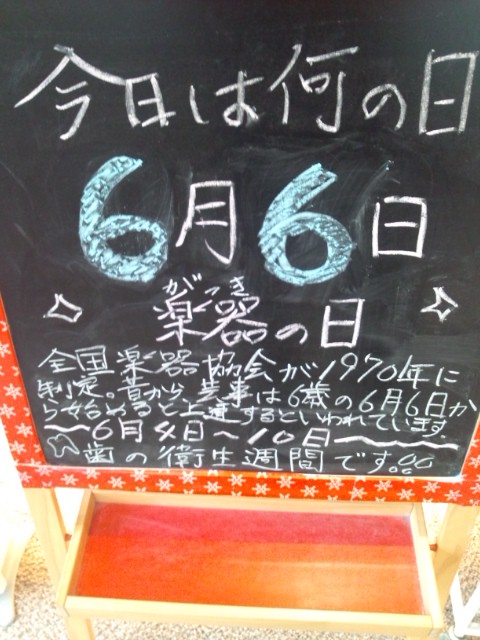 今日は何の日
6月6日
がっき
楽器の日
全国楽器協会が1970年に
制定。昔から、芸事は6歳の6月6日か
ら始めると上達するといわれています。
〜6月4日〜10日〜
歯の衛生週間です。